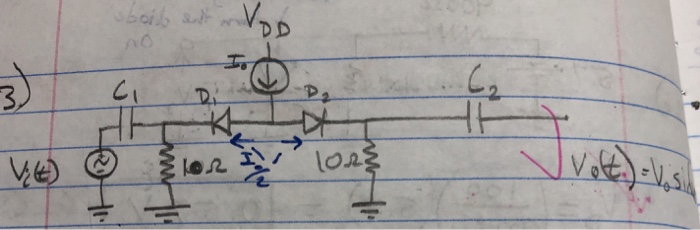 V_DD
I₀
3)
C₁
D₁
D₂
C₂
Vᵢ(t)
10Ω
I₀/2
10Ω
V₀(t) = V₀ sin